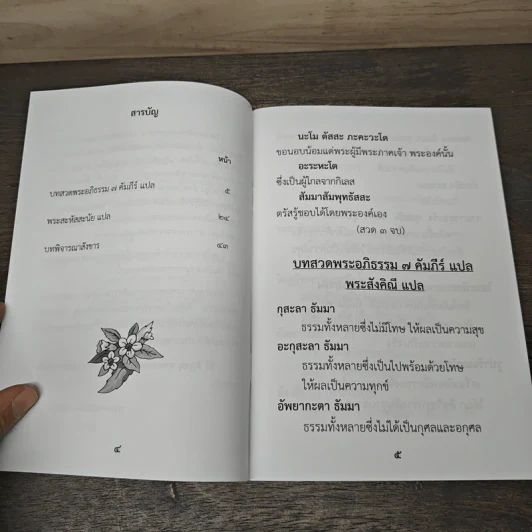 สารบัญ
หน้า
บทสวดพระอภิธรรม ๗ คัมภีร์ แปล ๕
พระสะหัสสะนัย แปล ๒๔
บทพิจารณาสังขาร ๔๓
๔
นะโม ตัสสะ ภะคะวะโต
ขอนอบน้อมแด่พระผู้มีพระภาคเจ้า พระองค์นั้น
อะระหะโต
ซึ่งเป็นผู้ไกลจากกิเลส
สัมมาสัมพุทธัสสะ
ตรัสรู้ชอบได้โดยพระองค์เอง
(สวด ๓ จบ)
บทสวดพระอภิธรรม ๗ คัมภีร์ แปล
พระสังคิณี แปล
กุสะลา ธัมมา
ธรรมทั้งหลายซึ่งไม่มีโทษ ให้ผลเป็นความสุข
อะกุสะลา ธัมมา
ธรรมทั้งหลายซึ่งเป็นไปพร้อมด้วยโทษ
ให้ผลเป็นความทุกข์
อัพยากะตา ธัมมา
ธรรมทั้งหลายซึ่งไม่ได้เป็นกุศลและอกุศล
๕